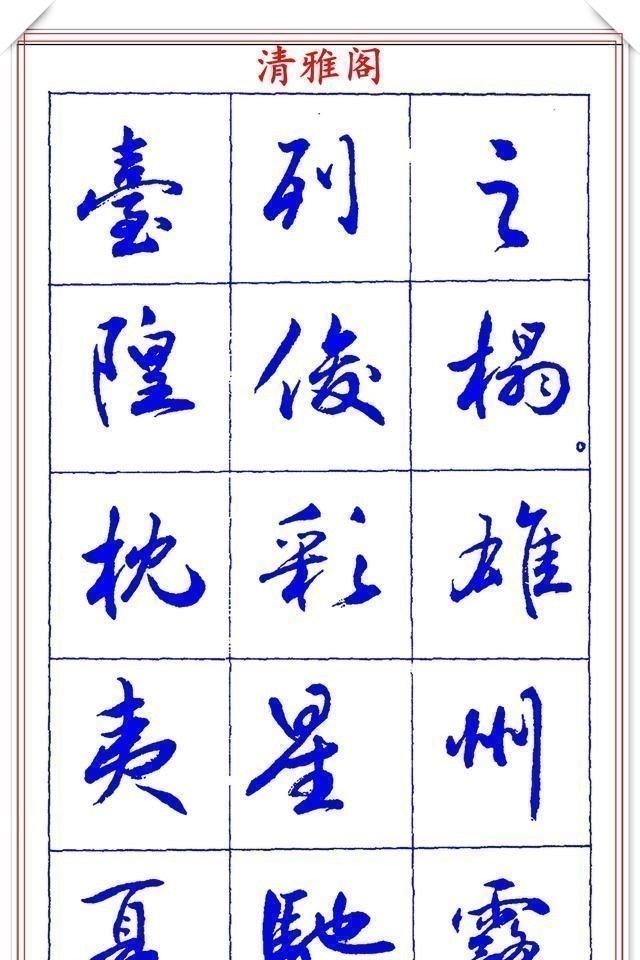 清雅阁
之榻。雄州霧
列俊彩星馳
臺隍枕夷夏